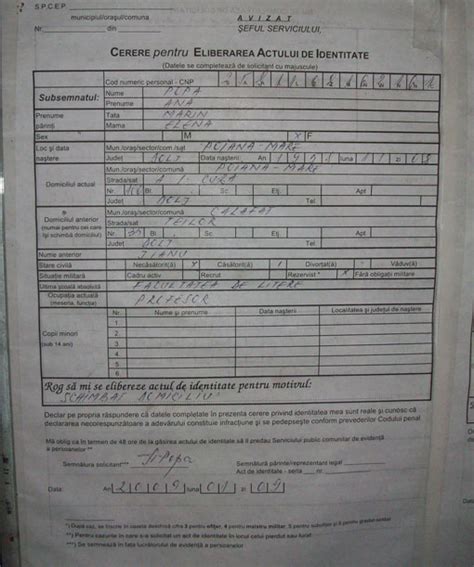 S.P.C.E.P.
municipiul/orașul/comuna
Nr. din
AVIZAT
ȘEFUL SERVICIULUI,
CERERE pentru ELIBERAREA ACTULUI DE IDENTITATE
(Datele se completează de solicitant cu majuscule)
Subsemnatul:
Cod numeric personal - CNP
Nume POPA
Prenume ANA
Prenume părinți
Tata MARIN
Mama ELENA
Sex M X F
Loc și data naștere
Mun./oraș/sector/com./sat POIANA-MARE
Județ DOLJ Data nașterii: An luna zi
Domiciliul actual
Mun./oraș/sector/comună POIANA-MARE
Strada/sat A I CUZA
Nr. Bl. Sc. Etj. Apt
Județ DOLJ Tel.
Domiciliul anterior
(numai pentru cei care își schimbă domiciliul)
Mun./oraș/sector/comună CALAFAT
Strada/sat TEILOR
Nr. Bl. Sc. Etj. Apt
Județ DOLJ Tel.
Nume anterior JIANU
Stare civilă Necăsătorit(ă) Căsătorit(ă) Divorțat(ă) Văduv(ă)
Situație militară Cadru activ Recrut Rezervist * X Fără obligații militare
Ultima școală absolvită FACULTATEA DE LITERE
Ocupația actuală
(meseria, funcția)
PROFESOR
Copii minori
(sub 14 ani)
Nr. Nume și prenume Data nașterii Localitatea și județul de naștere
1.
2.
3.
4.
5.
6.
Rog să mi se elibereze actul de identitate pentru motivul:
SCHIMBAT DOMICILIU
Declar pe propria răspundere că datele completate în prezenta cerere privind identitatea mea sunt reale și cunosc că
declararea necorespunzătoare a adevărului constituie infracțiune și se pedepsește conform prevederilor Codului penal
Mă oblig ca în termen de 48 ore de la găsirea actului de identitate să îl predau Serviciului public comunitar de evidență
a persoanelor**
Semnătura solicitant Popa
Semnătură părinte/reprezentant legal
Act de identitate - seria nr.
Data: An 2009 luna 01 zi 09
*) După caz, se înscrie în caseta destinată cifra 3 pentru ofițer, 4 pentru maistru militar, 5 pentru subofițer
**) Pentru cazurile în care s-a solicitat un act de identitate în locul celui pierdut sau furat
***) Se semnează în fața lucrătorului de evidență a persoanelor